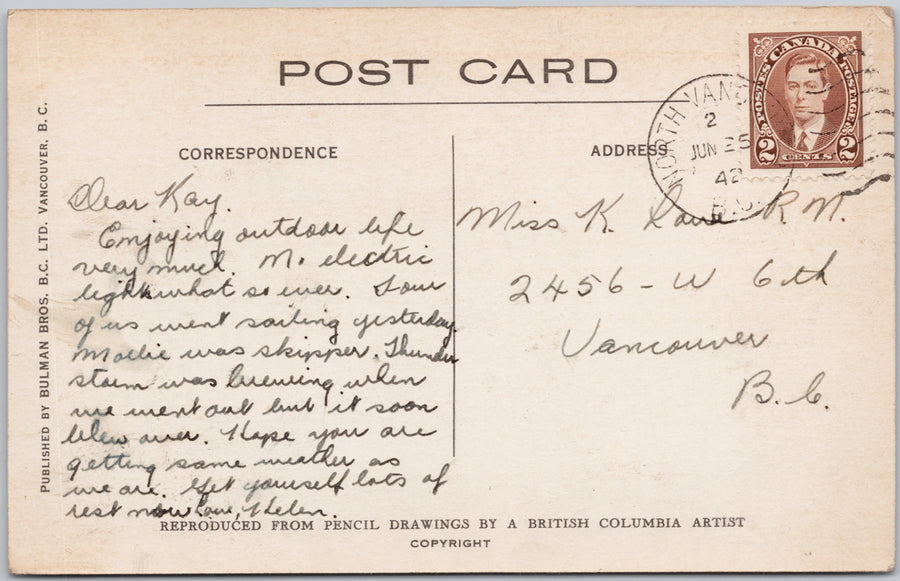 POST CARD
CORRESPONDENCE
ADDRESS
CANADA
POSTES
POSTAGE
2 2
CENTS
NORTH VANC
2
JUN 25
42
B.C.
Dear Kay.
Enjoying outdoor life
very much. No electric
lights what so ever. Four
of us went sailing yesterday.
Mollie was skipper. Thunder
storm was brewing when
we went out but it soon
blew over. Hope you are
getting same weather as
we are. Get yourself lots of
rest now Love, Helen.
Miss K. R.N.
2456 - W 6th
Vancouver
B.C.
PUBLISHED BY BULMAN BROS. B.C. LTD. VANCOUVER, B. C.
REPRODUCED FROM PENCIL DRAWINGS BY A BRITISH COLUMBIA ARTIST
COPYRIGHT